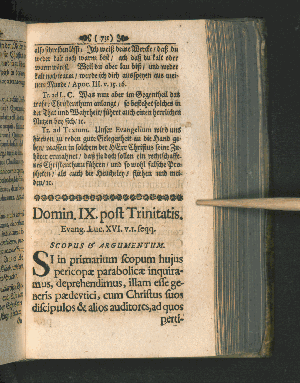 ( 731 )
also schreiben läst: Ich weiß deine Wercke / daß du
weder kalt noch warm bist / ach daß du kalt oder
warm wärest. Weil du aber lau bist / und weder
kalt noch warm / werde ich dich ausspeyen aus mei-
nem Munde / Apoc. III. v. 15. 16.
Tr. ad L. C. Was nun aber im Gegentheil das
wahre Christenthum anlangt / so bestehet solches in
der That und Wahrheit / führet auch einen herrlichen
Nutzen bey sich / ec.
Tr. ad Textum. Unser Evangelium wird uns
hiervon zu reden gute Gelegenheit an die Hand ge-
ben / massen in solchem der HErr Christus seine Zu-
hörer ermahnet / daß sie doch sollen ein rechtschaffe-
nes Christenthum führen / und so wohl falsche Pro-
pheten / als auch die Heucheley / fliehen und mei-
den / ec.
Domin. IX. post Trinitatis.
Evang. Luc. XVI. v. 1. seqq.
SCOPUS & ARGUMENTUM.
SI in primarium scopum hujus
pericopæ parabolicæ inquira-
mus, deprehendimus, illam esse ge-
neris pædevtici, cum Christus suos
discipulos & alios auditores, ad quos
perti-